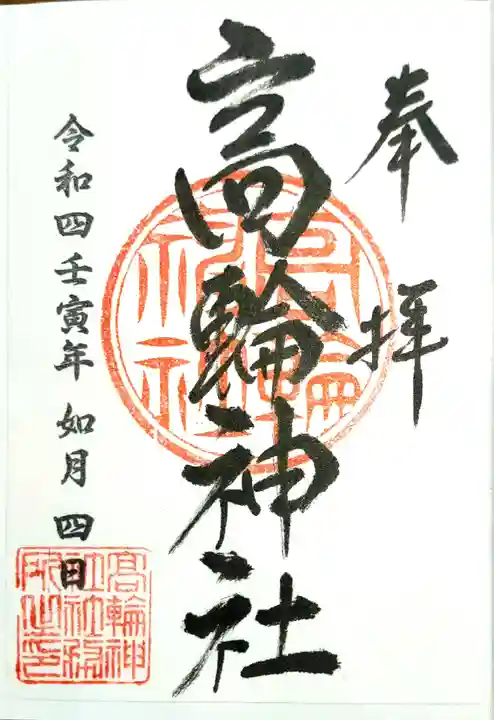 奉拝
高輪神社
令和四壬寅年 如月 四日
高輪神社
高輪神社社務所之印